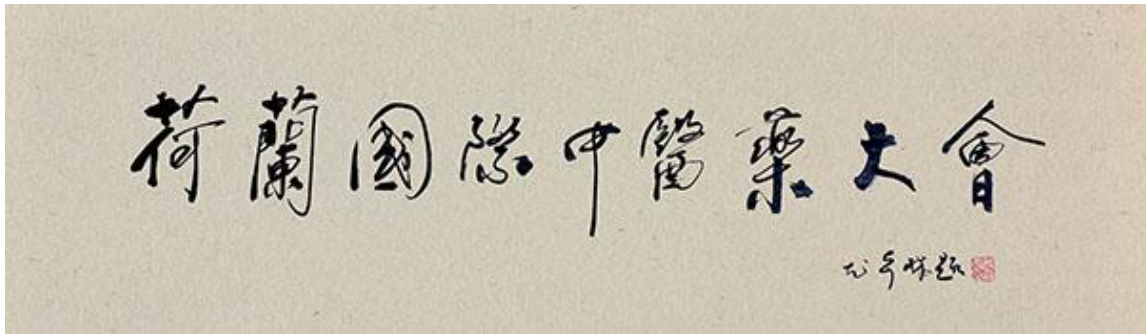 荷蘭國際中醫藥大會
題